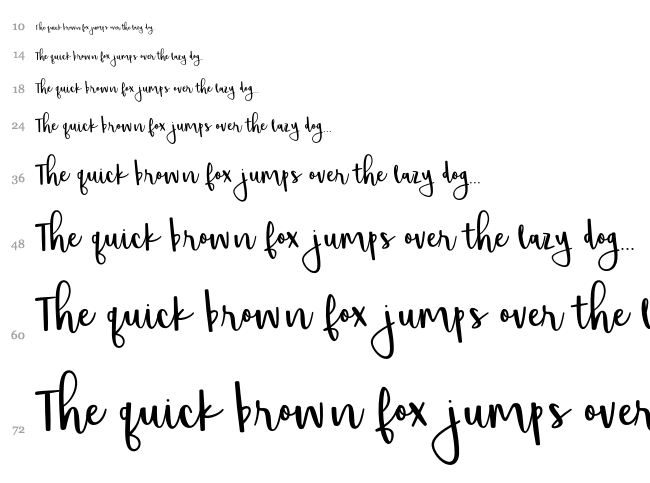 10 The quick brown fox jumps over the lazy dog...
14 The quick brown fox jumps over the lazy dog...
18 The quick brown fox jumps over the lazy dog...
24 The quick brown fox jumps over the lazy dog...
36 The quick brown fox jumps over the lazy dog...
48 The quick brown fox jumps over the lazy dog...
60 The quick brown fox jumps over the l
72 The quick brown fox jumps over